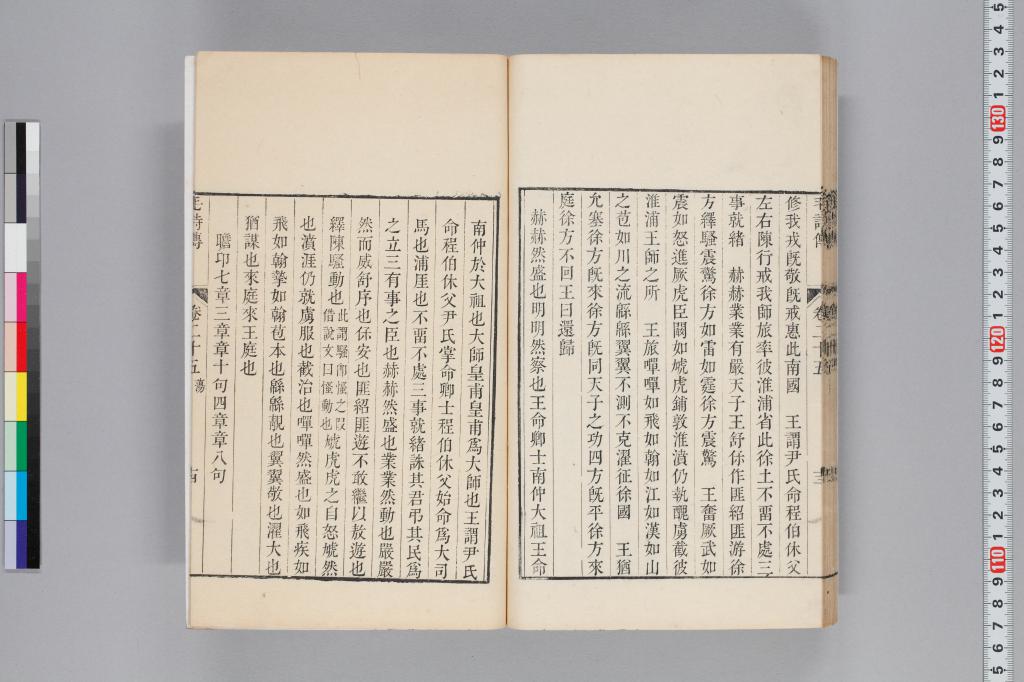 修我戎旣敬旣戒惠此南國　王謂尹氏命程伯休父
左右陳行戒我師旅率彼淮浦省此徐土不畱不處三
事就緒　赫赫業業有嚴天子王舒保作匪紹匪游徐
方繹騷震驚徐方如雷如霆徐方震驚　王奮厥武如
震如怒進厥虎臣闞如虓虎鋪敦淮濆仍執醜虜截彼
淮浦王師之所　王旅嘽嘽如飛如翰如江如漢如山
之苞如川之流緜緜翼翼不測不克濯征徐國　王猶
允塞徐方旣來徐方旣同天子之功四方旣平徐方來
庭徐方不回王曰還歸
赫赫然盛也明明然察也王命卿士南仲大祖王命
南仲於大祖也大師皇甫皇甫爲大師也王謂尹氏
命程伯休父尹氏掌命卿士程伯休父始命爲大司
馬也浦厓也不畱不處三事就緒誅其君弔其民爲
之立三有事之臣也赫赫然盛也業業然動也嚴嚴
然而威舒序也保安也匪紹匪遊不敢繼以敖遊也
繹陳騷動也此謂騷卽慅之叚借說文曰慅動也虓虎虎之自怒虓然
也濆涯仍就虜服也截治也嘽嘽然盛也如飛疾如
飛如翰摯如翰苞本也緜緜靚也翼翼敬也濯大也
猶謀也來庭來王庭也
瞻卬七章三章章十句四章章八句
毛詩傳　卷二十五　蕩